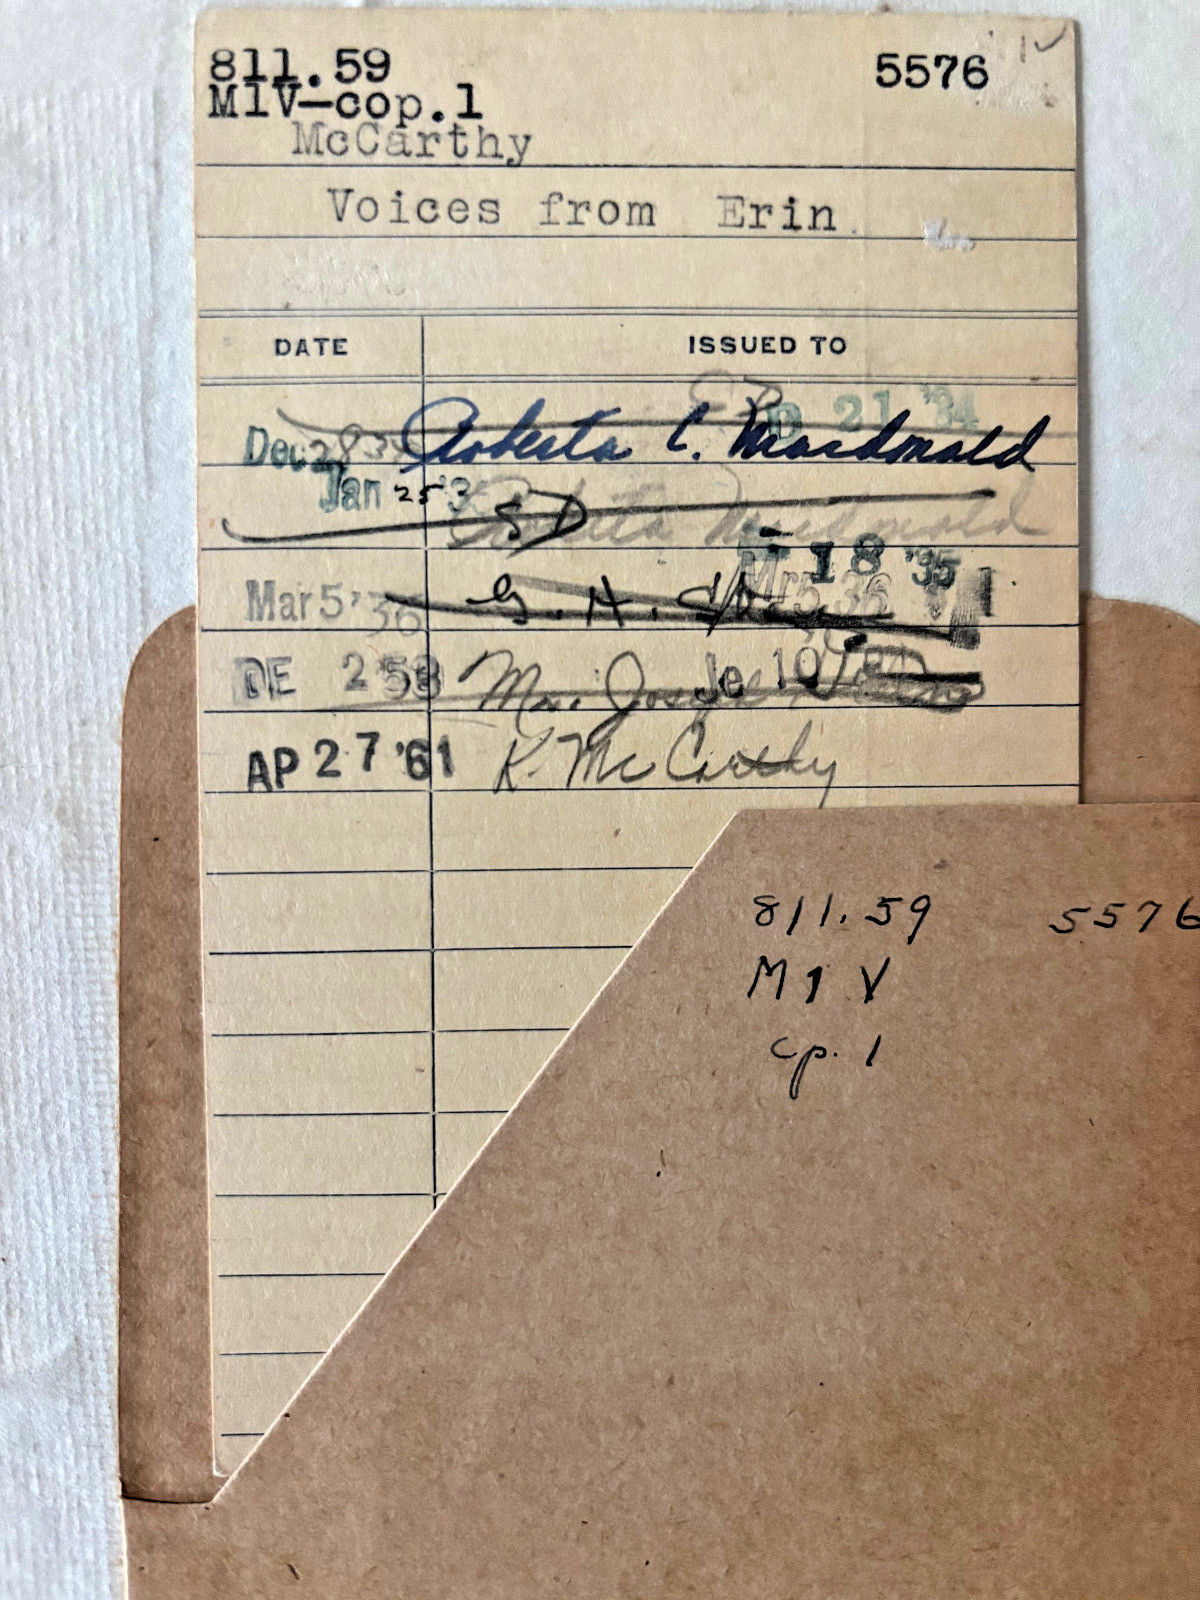 811.59 5576
M1V-cop.1
McCarthy
Voices from Erin
DATE ISSUED TO
21 '34
Dec 28 34 Roberta C. Macdonald
Jan 25 '3 Roberta Macdonald
SD
18 '35
Mar 5 '36 G. H.
Mr 5 36
DE 2 '58 Mrs. Joseph
Je 10
AP 27 '61 K. McCarthy
811.59 5576
M1V
cp. 1